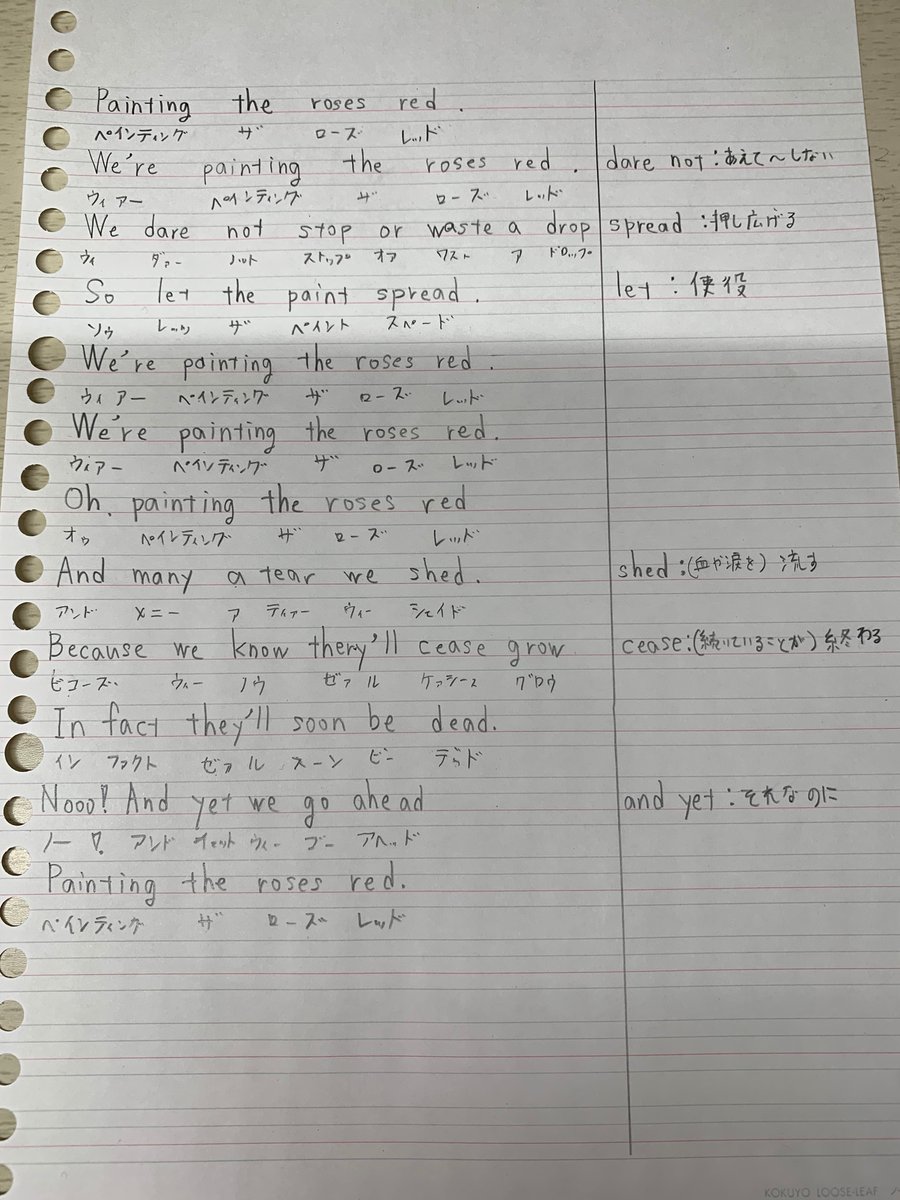 Painting the roses red.
ペインティング ザ ローズ レッド
We're painting the roses red. dare not:あえて〜しない
ウィアー ペインティング ザ ローズ レッド
We dare not stop or waste a drop spread:押し広げる
ウィ ダァー ノット ストップ オア ワスト ア ドロップ
So let the paint spread. let:使役
ソゥ レッツ ザ ペイント スペード
We're painting the roses red.
ウィアー ペインティング ザ ローズ レッド
We're painting the roses red.
ウィアー ペインティング ザ ローズ レッド
Oh, painting the roses red
オゥ ペインティング ザ ローズ レッド
And many a tear we shed. shed:(血や涙を)流す
アンド メニー ア ティアー ウィー シェイド
Because we know thery'll cease grow cease:(続いていることが)終わる
ビコーズ ウィー ノウ ゼァル ケァシース グロウ
In fact they'll soon be dead.
イン ファクト ゼァル スーン ビー デッド
Nooo! And yet we go ahead and yet:それなのに
ノー アンド イェット ウィー ゴー アヘッド
Painting the roses red.
ペインティング ザ ローズ レッド
KOKUYO LOOSE-LEAF